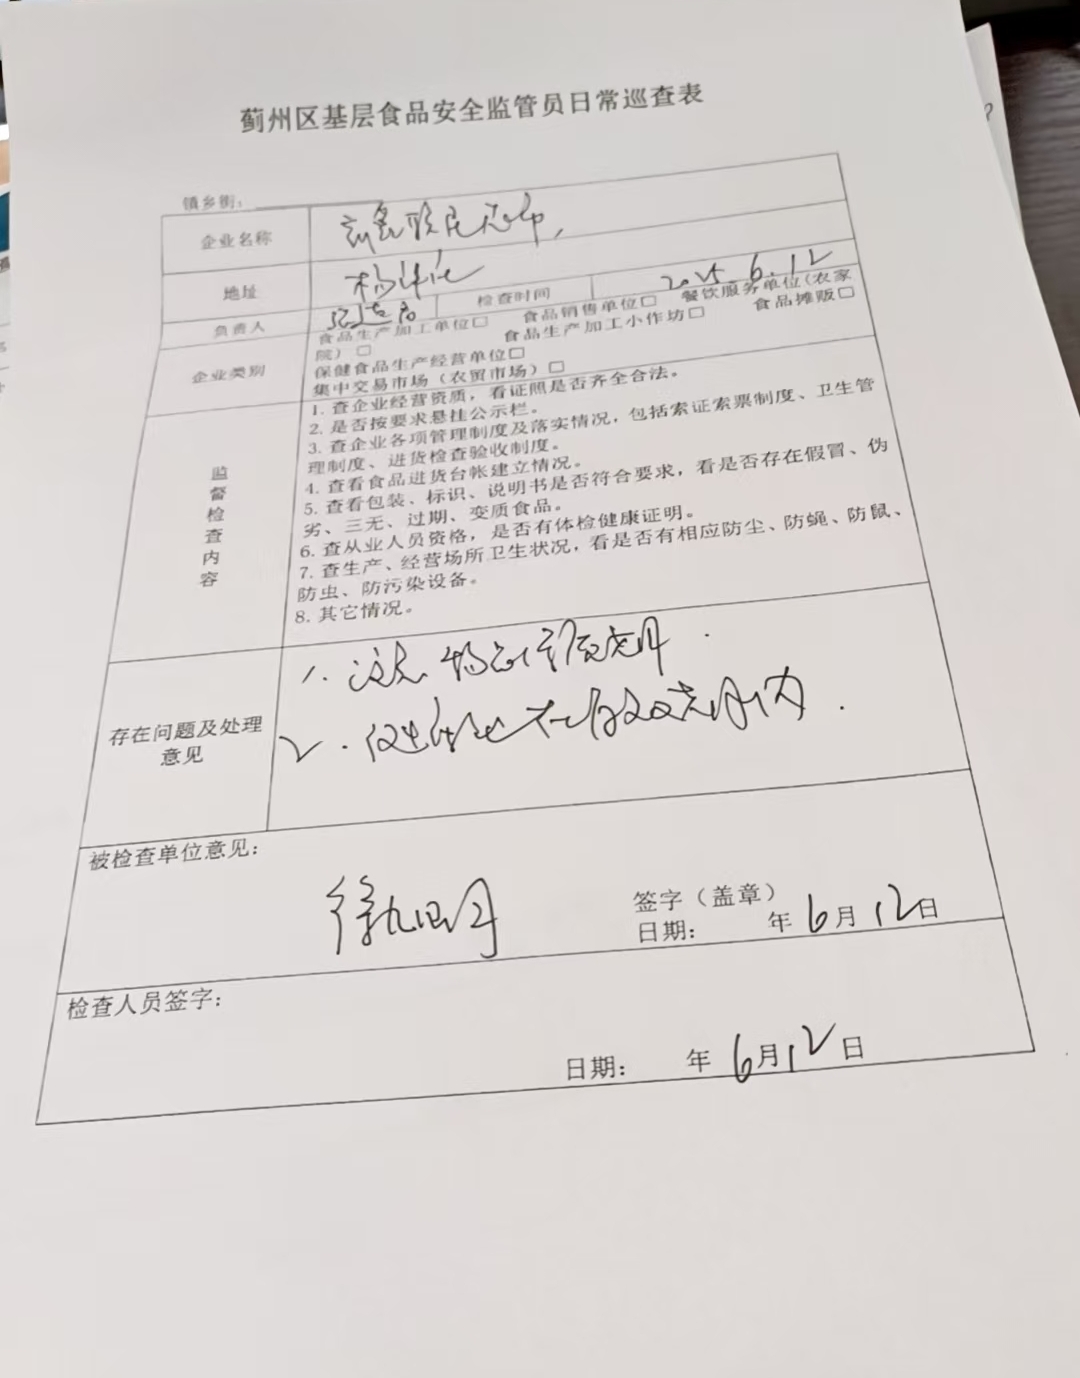 蓟州区基层食品安全监管员日常巡查表
镇乡街：
企业名称
地址
负责人 检查时间 2025.6.12
企业类别
食品生产加工单位□ 食品销售单位□ 餐饮服务单位（农家
院）□ 食品生产加工小作坊□ 食品摊贩□
保健食品生产经营单位□
集中交易市场（农贸市场）□
监督检查内容
1. 查企业经营资质，看证照是否齐全合法。
2. 是否按要求悬挂公示栏。
3. 查企业各项管理制度及落实情况，包括索证索票制度、卫生管
理制度、进货检查验收制度。
4. 查看食品进货台帐建立情况。
5. 查看包装、标识、说明书是否符合要求，看是否存在假冒、伪
劣、三无、过期、变质食品。
6. 查从业人员资格，是否有体检健康证明。
7. 查生产、经营场所卫生状况，看是否有相应防尘、防蝇、防鼠、
防虫、防污染设备。
8. 其它情况。
存在问题及处理
意见
1.
2.
被检查单位意见：
签字（盖章）
日期： 年6月12日
检查人员签字：
日期： 年6月12日